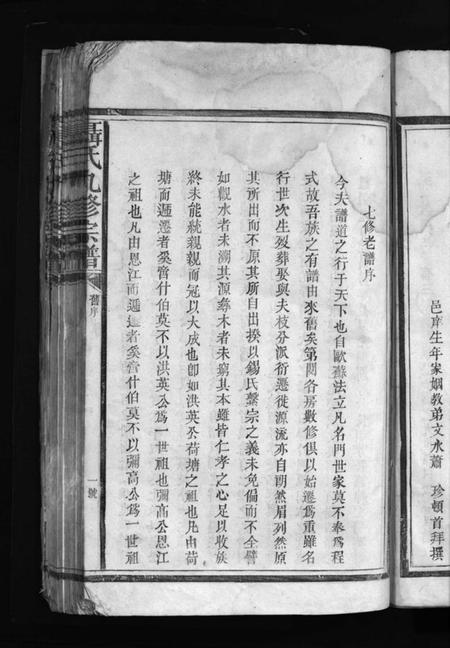 邑庠生年家姻教弟文水蕭　珍頓首拜撰
七修老譜序
今夫譜道之行于天下也自歐蘇法立凡名門世家莫不奉為程
式故吾族之有譜由來舊矣第閱各房數修俱以始遷為重雖名
行世次生歿葬娶與夫枝分派衍遷徙源流亦自朗然眉列然原
其所出而不原其所自出揆以錫氏鼇宗之義未免偏而不全譬
如觀水者未溯其源尋木者未窮其本雖皆仁孝之心足以收族
終未能統親親而冠以大成也卽如洪英公荷塘之祖也凡由荷
塘而遞遷者奚啻什伯莫不以洪英公為一世祖也彌高公恩江
之祖也凡由恩江而遞遷者奚啻什伯莫不以彌高公為一世祖
聶氏九修宗譜
舊序
一號